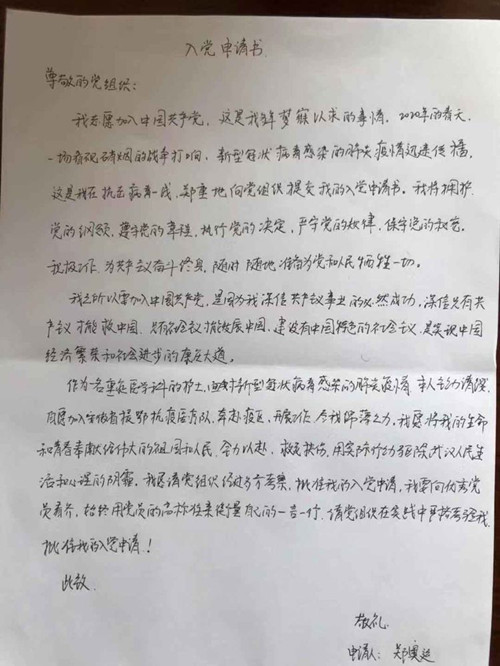 入党申请书
尊敬的党组织：
我志愿加入中国共产党，这是我多年梦寐以求的事情。2020年的春天，
一场看不见硝烟的战争打响，新型冠状病毒感染的肺炎疫情迅速传播，
这是我在抗击病毒一线，郑重地向党组织提交我的入党申请书。我将拥护
党的纲领，遵守党的章程，执行党的决定，严守党的纪律，保守党的秘密。
积极工作，为共产主义奋斗终身，随时随地准备为党和人民牺牲一切。
我之所以要加入中国共产党，是因为我深信共产主义事业的必然成功，深信只有共
产主义才能救中国，只有社会主义才能发展中国，建设有中国特色的社会主义，是实现中国
经济繁荣和社会进步的康庄大道。
作为一名重症医学科的护士，面对新型冠状病毒感染的肺炎疫情，主动请缨，
自愿加入安徽省援鄂抗疫医疗队，奔赴疫区，开展工作，尽我绵薄之力，我愿将我的生命
和青春奉献给伟大的祖国和人民，全力以赴，救死扶伤，用实际行动驱除武汉人民生
活和心理的阴霾。我恳请党组织经过多方考察，批准我的入党申请，我要向优秀党
员看齐，始终用党员的高标准来衡量自己的一言一行，请党组织在实践中严格考验我，
批准我的入党申请！
此致
敬礼
申请人：郑